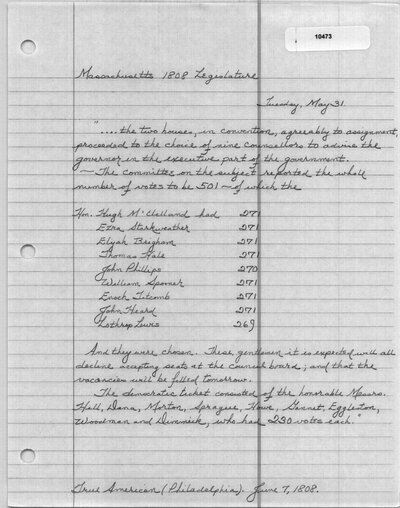 10473
Massachusetts 1808 Legislature
Tuesday, May 31
"....the two houses, in convention, agreeably to assignment,
proceeded to the choice of nine Councellors to advise the
governor in the executive part of the government.
~ The committee on the subject reported the whole
number of votes to be 501 ~ of which the
Hon. Hugh McClelland had 271
Ezra Starkweather 271
Elijah Brigham 271
Thomas Hale 271
John Phillips 270
William Spooner 271
Enoch Titcomb 271
John Heard 271
Lothrop Lewis 269
And they were chosen. These gentlemen it is expected will all
decline accepting seats at the council board; and that the
vacancies will be filled tomorrow.
The democratic ticket consisted of the honorable Messrs.
Hall, Dana, Morton, Sprague, Howe, Gannet, Eggleston,
Woodman and Dimmick, who had 230 votes each."
True American (Philadelphia). June 7, 1808.